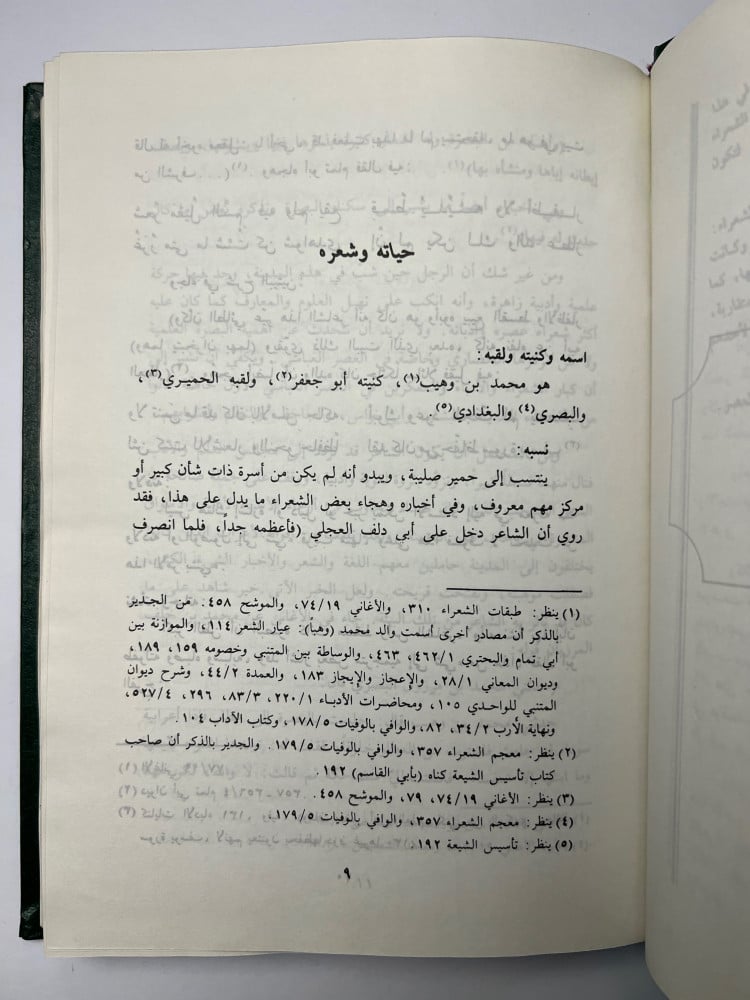 حياته وشعره
اسمه وكنيته ولقبه:
هو محمد بن وهيب(١)، كنيته أبو جعفر(٢)، ولقبه الحميري(٣)،
والبصري(٤) والبغدادي(٥).
نسبه:
ينتسب إلى حمير صليبة، ويبدو أنه لم يكن من أسرة ذات شأن كبير أو
مركز مهم معروف، وفي أخباره وهجاء بعض الشعراء ما يدل على هذا، فقد
روي أن الشاعر دخل على أبي دلف العجلي (فأعظمه جداً، فلما انصرف
(١) ينظر: طبقات الشعراء ٣١٠، والأغاني ٧٤/١٩، والموشح ٤٥٨. من الجدير
بالذكر أن مصادر أخرى أسمت والد محمد (وهباً): عيار الشعر ١١٤، والموازنة بين
أبي تمام والبحتري ٤٦٢/١، ٤٦٣، والوساطة بين المتنبي وخصومه ١٥٩، ١٨٩،
وديوان المعاني ٢٨/١، والإعجاز والإيجاز ١٨٣، والعمدة ٤٤/٢، وشرح ديوان
المتنبي للواحدي ١٠٥، ومحاضرات الأدباء ٢٢٠/١، ٨٣/٣، ٢٩٦، ٥٢٧/٤،
ونهاية الأرب ٣٤/٢، ٨٢، والوافي بالوفيات ١٧٨/٥، وكتاب الآداب ١٠٤.
(٢) ينظر: معجم الشعراء ٣٥٧، والوافي بالوفيات ١٧٩/٥. والجدير بالذكر أن صاحب
كتاب تأسيس الشيعة كناه (بأبي القاسم) ١٩٢.
(٣) ينظر: الأغاني ٧٤/١٩، ٧٩، والموشح ٤٥٨.
(٤) ينظر: معجم الشعراء ٣٥٧، والوافي بالوفيات ١٧٩/٥.
(٥) ينظر: تأسيس الشيعة ١٩٢.
٩